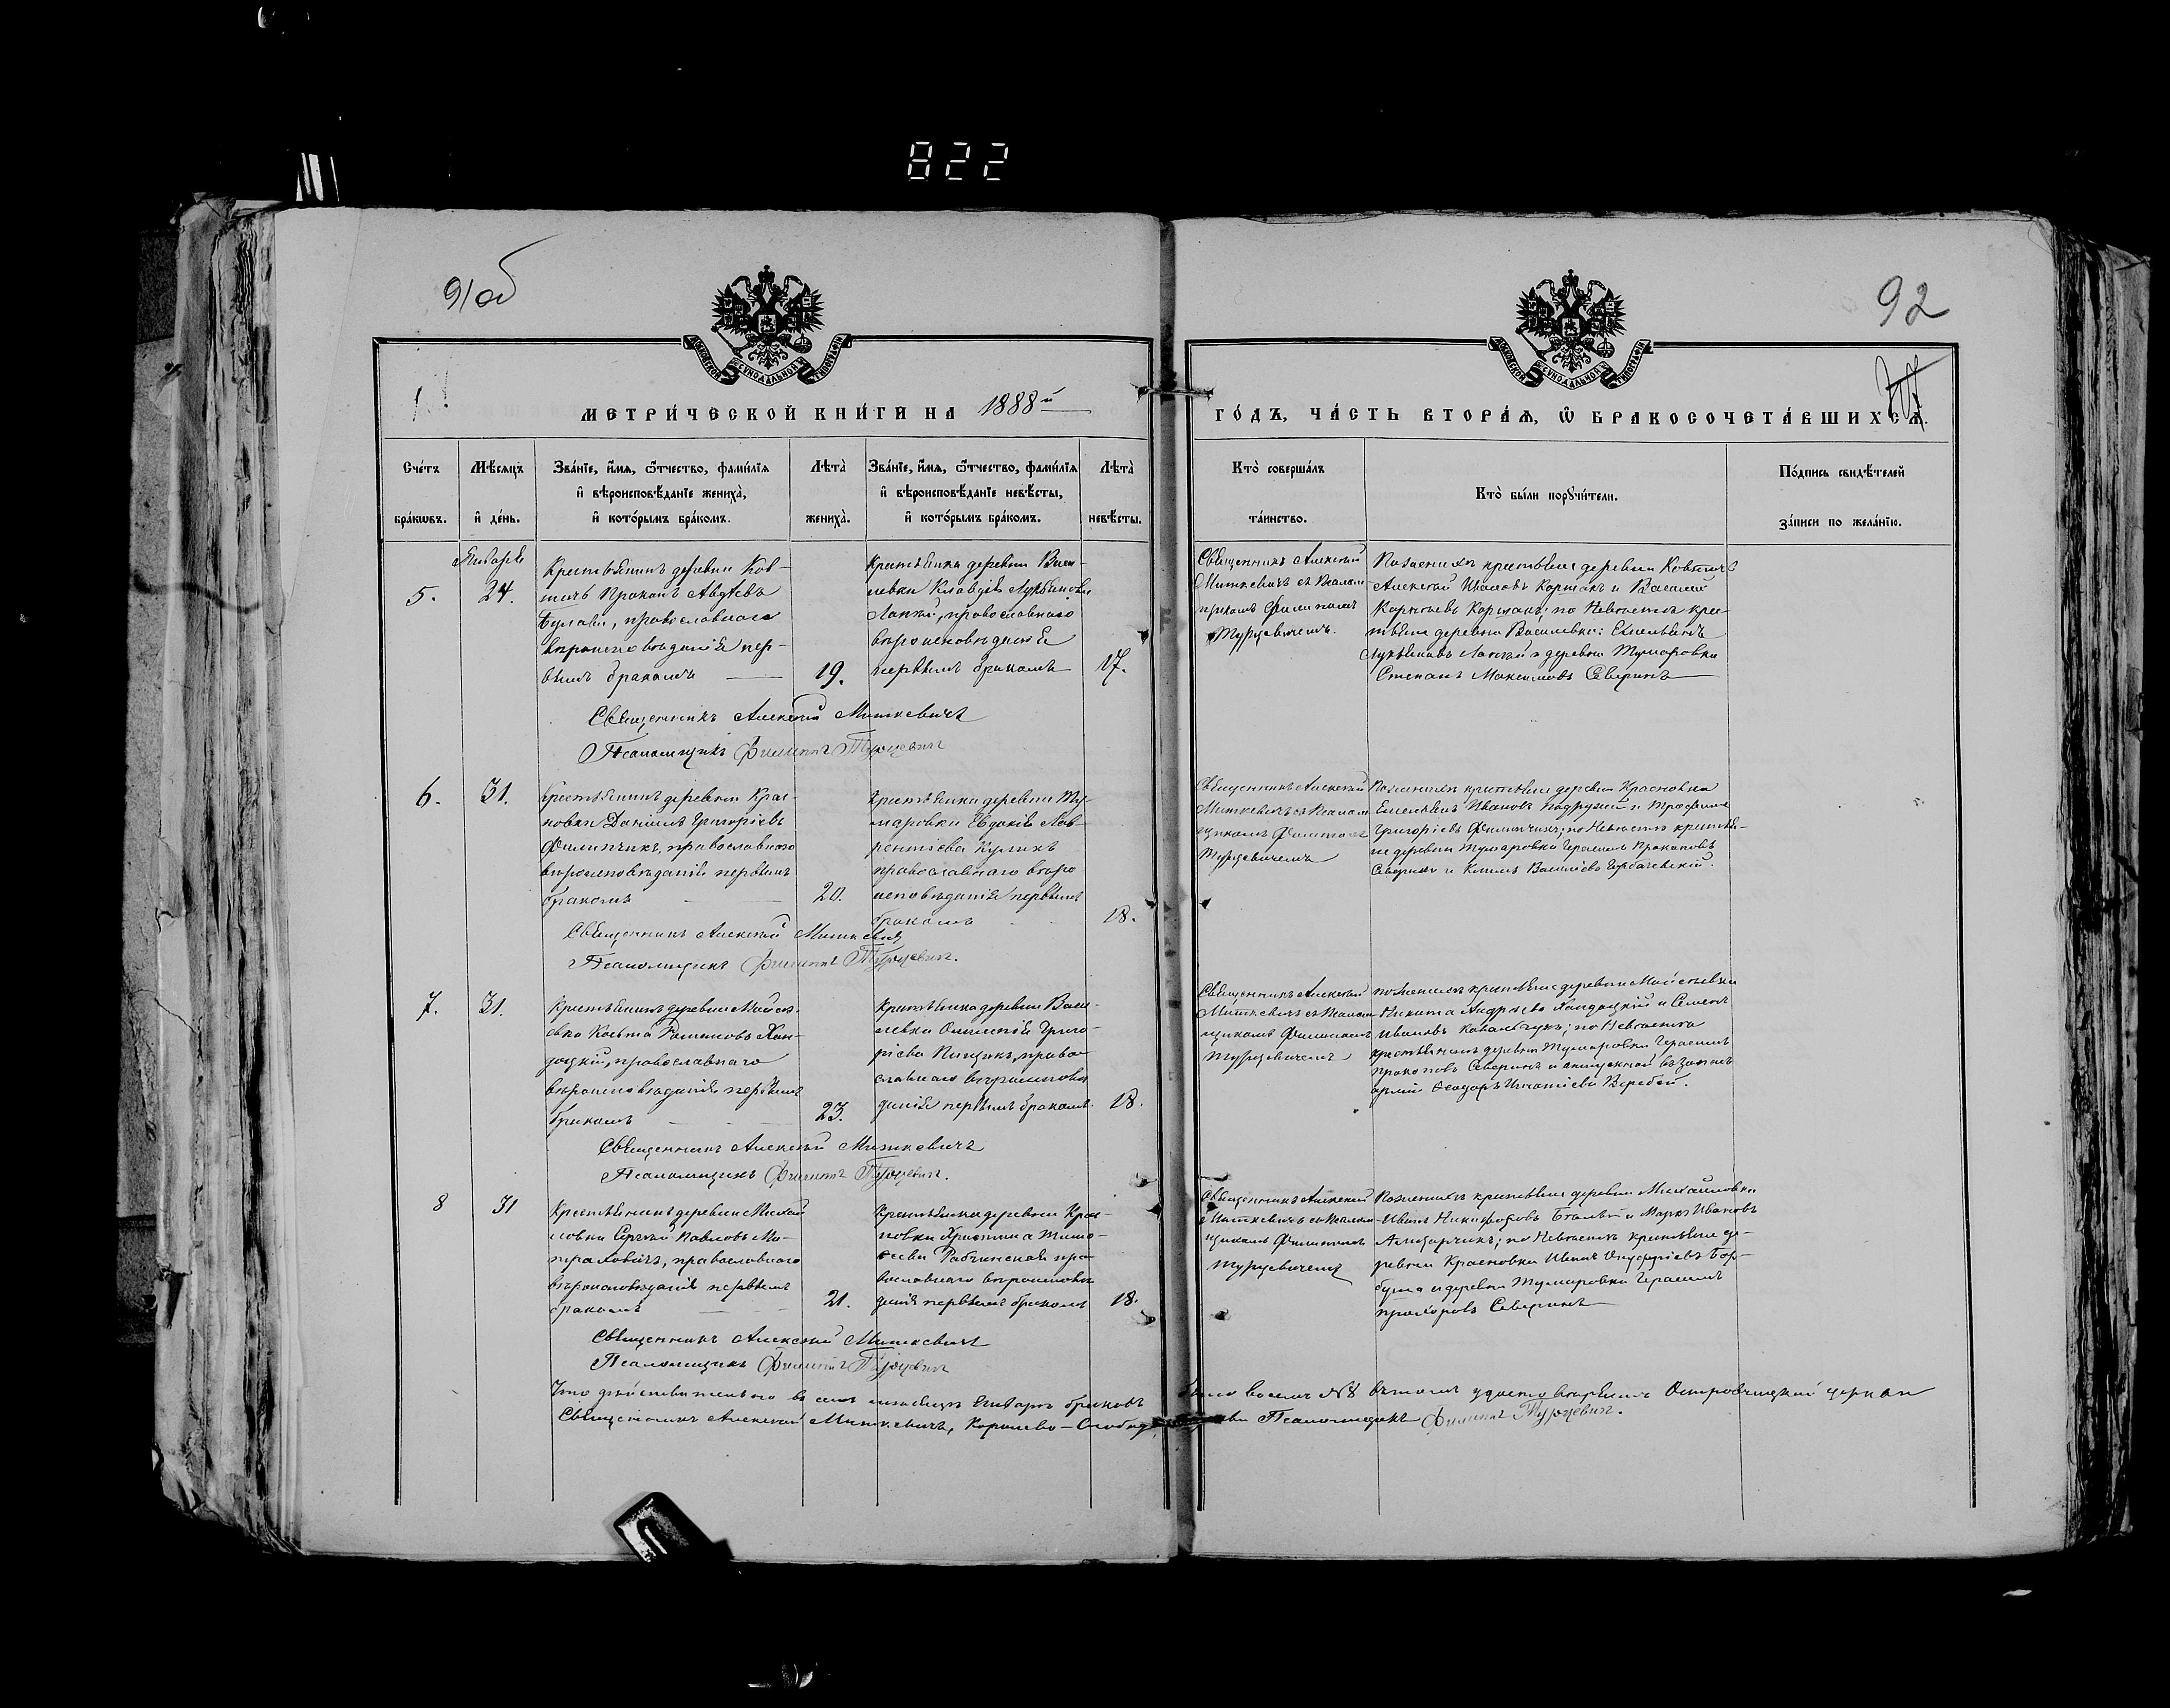 822
91об
92
МОСКОВСКОЙ СУНОДАЛЬНОЙ ТИПОГРАФІИ
МОСКОВСКОЙ СУНОДАЛЬНОЙ ТИПОГРАФІИ
МЕТРИ́ЧЕСКОЙ КНИ́ГИ НА 1888й
ГО́ДЪ, ЧА́СТЬ ВТОРА́Я, Ѡ҆ БРАКОСОЧЕТА́ВШИХСѦ.
Сче́тъ бра́кѡвъ.
Мѣ́сѧцъ и҆ де́нь.
Зва́нїе, и҆́мѧ, ѻ҆́тчество, фами́лїѧ
и҆ вѣроисповѣ́данїе жениха̀,
и҆ кото́рымъ бра́комъ.
Лѣта̀ жениха̀.
Зва́нїе, и҆́мѧ, ѻ҆́тчество, фами́лїѧ
и҆ вѣроисповѣ́данїе невѣ́сты,
и҆ кото́рымъ бра́комъ.
Лѣта̀ невѣ́сты.
Кто̀ соверша́лъ та́инство.
Кто̀ бы́ли порꙋчи́тели.
По́дпись свидѣ́телей за́писи по жела́нїю.
Января
5.
24.
Крестьянинъ деревни Ков-
шичь Прокопъ Авдѣевъ
православнаго
вѣроисповѣданія пер-
вымъ бракомъ
19.
Крестьянка деревни Васи-
левки Клавдія Лукьянова
Лаптѣй, православнаго
вѣроисповѣданія
первымъ бракомъ
17.
Священникъ Алексѣй
Миткевичъ съ псалом-
щикомъ Филиппомъ
Турцевичемъ.
По женихѣ крестьяне деревни Ковшичь
Алексѣй Ивановъ Коршакъ и Василій
Карповъ Коршакъ; по невѣстѣ кре-
стьяне деревни Василевки: Емельянъ
Лукьяновъ Лаптѣй и деревни Тумаровки
Степанъ Максимовъ Северинъ
Священникъ Алексѣй Миткевичъ
Псаломщикъ Филиппъ Турцевичъ
6.
31.
Крестьянинъ деревни Крас-
новки Даніилъ Григорьевъ
Филипчикъ, православнаго
вѣроисповѣданія первымъ
бракомъ
20.
Крестьянка деревни Ту-
маровки Евдокія Лав-
рентіева Куликъ
православнаго вѣро
исповѣданія первымъ
бракомъ
18.
Священникъ Алексѣй
Миткевичъ съ псалом
щикомъ Филиппомъ
Турцевичемъ
По женихѣ крестьяне деревни Красновки
Емельянъ Ивановъ и Трофимъ
Григорьевъ Филипчикъ; по невѣстѣ крестья-
не деревни Тумаровки Герасимъ Прокоповъ
Северинъ и Климъ Василіевъ Горбачевскій.
Священникъ Алексѣй Миткевичъ
Псаломщикъ Филиппъ Турцевичъ.
7.
31.
Крестьянинъ деревни Мойсѣ-
евки Косьма Хан-
доцкій, православнаго
вѣроисповѣданія первымъ
бракомъ
23.
Крестьянка деревни Васи-
левки Григо-
рієва право-
славнаго вѣроисповѣ
данія первымъ бракомъ
18.
Священникъ Алексѣй
Миткевичъ съ псалом
щикомъ Филиппомъ
Турцевичемъ
По женихѣ крестьяне деревни Мойсѣевки
Никита Андреевъ Хандоцкій и Семенъ
Ивановъ Ковальчукъ; по невѣстѣ
крестьянинъ деревни Тумаровки Герасимъ
Прокоповъ Северинъ и отпускной въ запасъ
арміи Ѳеодоръ Игнатіевъ Веребей.
Священникъ Алексѣй Миткевичъ
Псаломщикъ Филиппъ Турцевичъ.
8
31
Крестьянинъ деревни Михай
ловки Сергѣй Павловъ
православнаго
вѣроисповѣданія первымъ
бракомъ
21.
Крестьянка деревни Крас-
новки Христина Тимо-
ѳеева пра-
вославнаго вѣроисповѣ
данія первымъ бракомъ
18.
Священникъ Алексѣй
Миткевичъ съ псалом
щикомъ Филиппомъ
Турцевичемъ
По женихѣ крестьяне деревни Михайловки
Иванъ Никифоровъ и Марко Ивановъ
по невѣстѣ крестьяне де-
ревни Красновки Иванъ Онуфріевъ
и деревни Тумаровки Герасимъ
Прохоровъ Северинъ
Священникъ Алексѣй Миткевичъ
Псаломщикъ Филиппъ Турцевичъ
Что дѣйствительно въ семъ мѣсяцѣ Январѣ браковъ было восемь №8 въ томъ удостовѣряемъ церкви
Священникъ Алексѣй Миткевичъ, Королево-Слобод Псаломщикъ Филиппъ Турцевичъ.